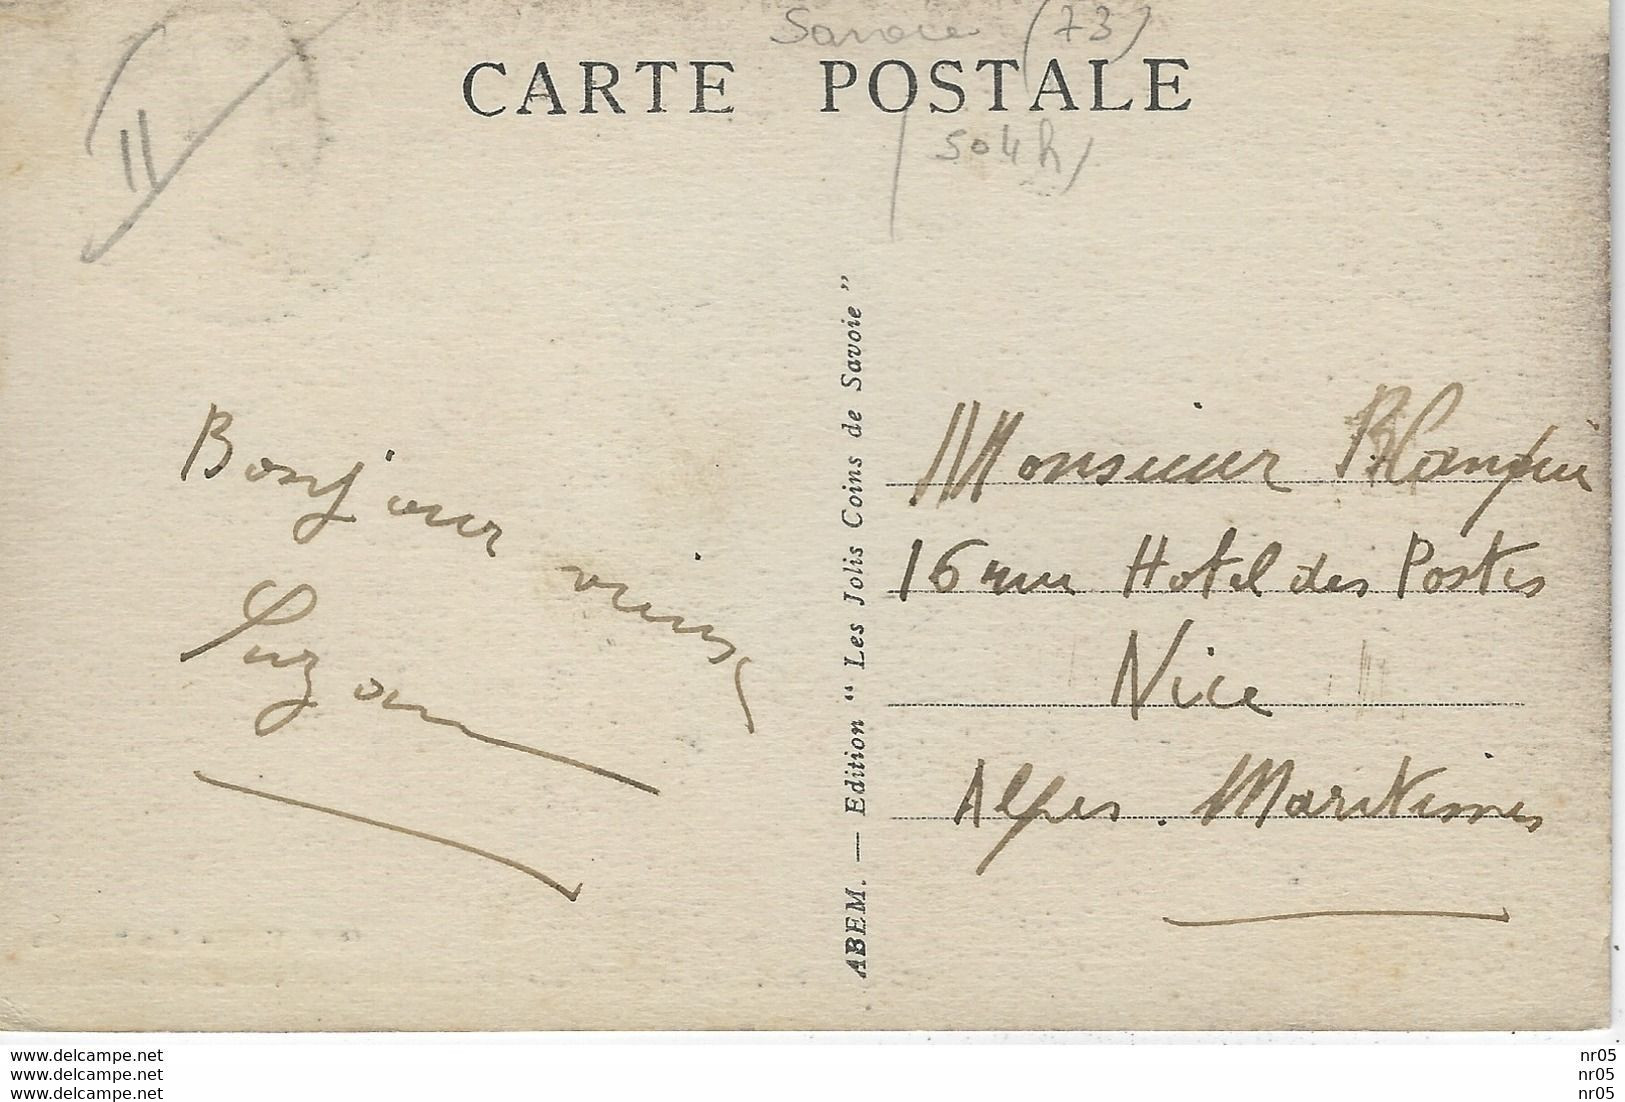 Savoie (73)
CARTE POSTALE
504h
II
Bonjour
Suzan
ABEM. — Edition " Les Jolis Coins de Savoie "
Monsieur
16 rue Hotel des Postes
Nice
Alpes. Maritimes
www.delcampe.net
www.delcampe.net
www.delcampe.net
nr05
nr05
nr05